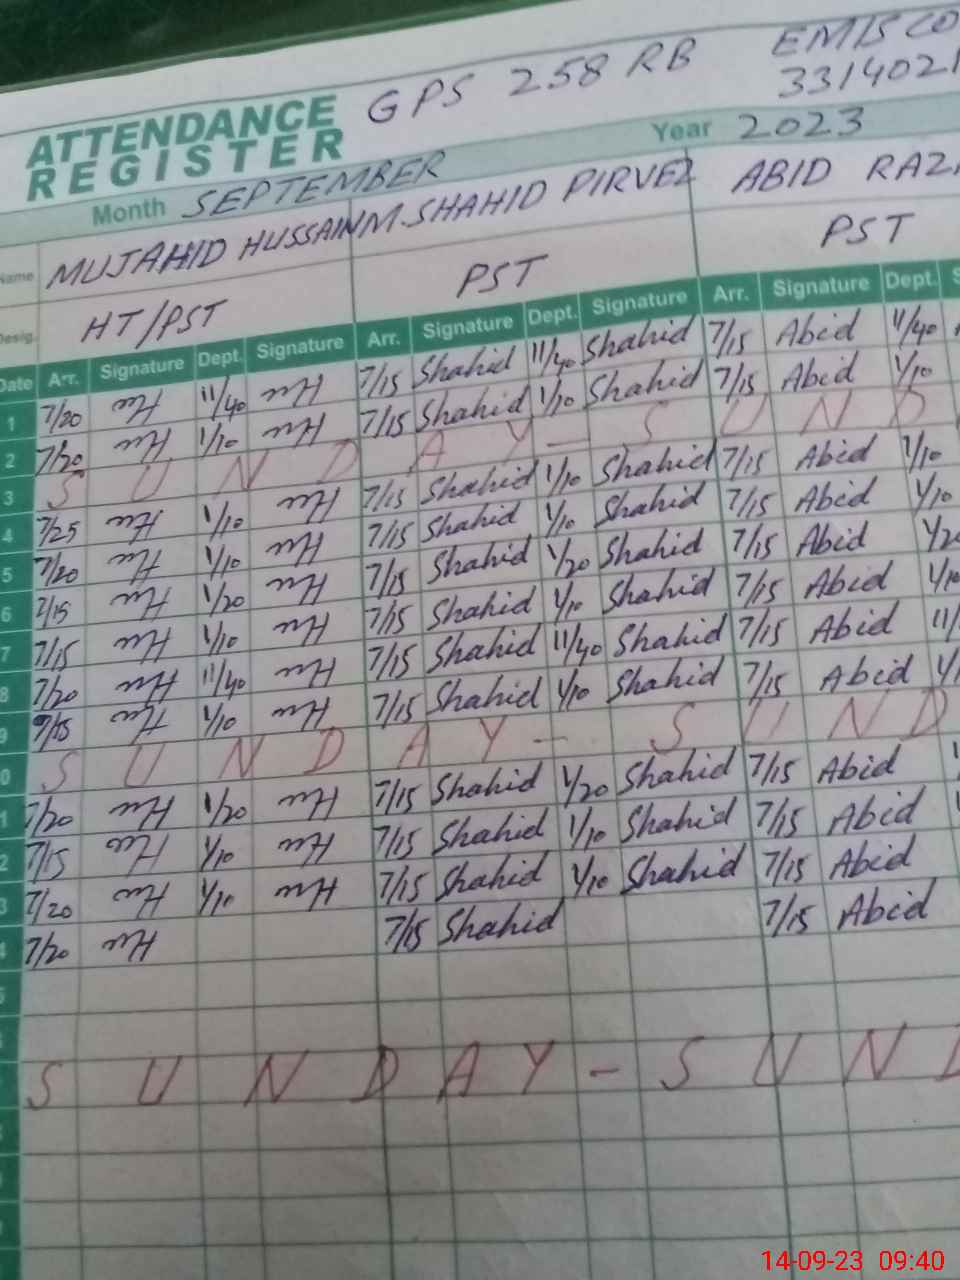 GPS 258 RB EMIS CO
ATTENDANCE 3314021
REGISTER
Month SEPTEMBER Year 2023
Name MUJAHID HUSSAIN M.SHAHID PIRVEZ ABID RAZ
Desig. HT/PST PST PST
Date Arr. Signature Dept. Signature Arr. Signature Dept. Signature Arr. Signature Dept. S
1 7/20 Hu 11/40 Hu 7/15 Shahid 11/40 Shahid 7/15 Abid 11/40
2 7/20 Hu 1/10 Hu 7/15 Shahid 1/10 Shahid 7/15 Abid 1/10
3 S U N D A Y - S U N D
4 7/25 Hu 1/10 Hu 7/15 Shahid 1/10 Shahid 7/15 Abid 1/10
5 7/20 Hu 1/10 Hu 7/15 Shahid 1/10 Shahid 7/15 Abid 1/10
6 7/15 Hu 1/20 Hu 7/15 Shahid 1/20 Shahid 7/15 Abid 1/20
7 7/15 Hu 1/10 Hu 7/15 Shahid 1/10 Shahid 7/15 Abid 1/10
8 7/20 Hu 11/40 Hu 7/15 Shahid 11/40 Shahid 7/15 Abid 11/
9 Hu 1/10 Hu 7/15 Shahid 1/10 Shahid 7/15 Abid 1/1
0 S U N D A Y - S U N D
1 7/20 Hu 1/20 Hu 7/15 Shahid 1/20 Shahid 7/15 Abid
2 7/15 Hu 1/10 Hu 7/15 Shahid 1/10 Shahid 7/15 Abid
3 7/20 Hu 1/10 Hu 7/15 Shahid 1/10 Shahid 7/15 Abid
4 7/20 Hu 7/15 Shahid 7/15 Abid
5
S U N D A Y - S U N D
14-09-23 09:40